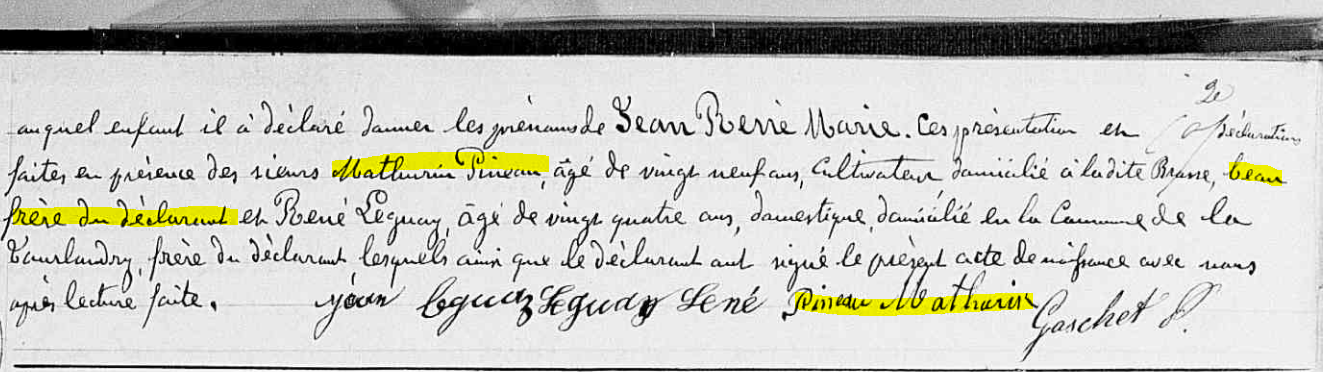 2e
auquel enfant il à déclaré donner les prénoms de Jean René Marie. Ces présentation et Déclaration
faites en présence des sieurs Mathurin Pineau, âgé de vingt neuf ans, Cultivateur domicilié à ladite Brosse, beau
frère du déclarant et René Leguay, âgé de vingt quatre ans, domestique, domicilié en la Commune de la
Tourlandry, frère du déclarant, lesquels ainsi que le déclarant ont signé le présent acte de naissance avec nous
après lecture faite. jean leguay Leguay René Pineau Mathurin Gaschet